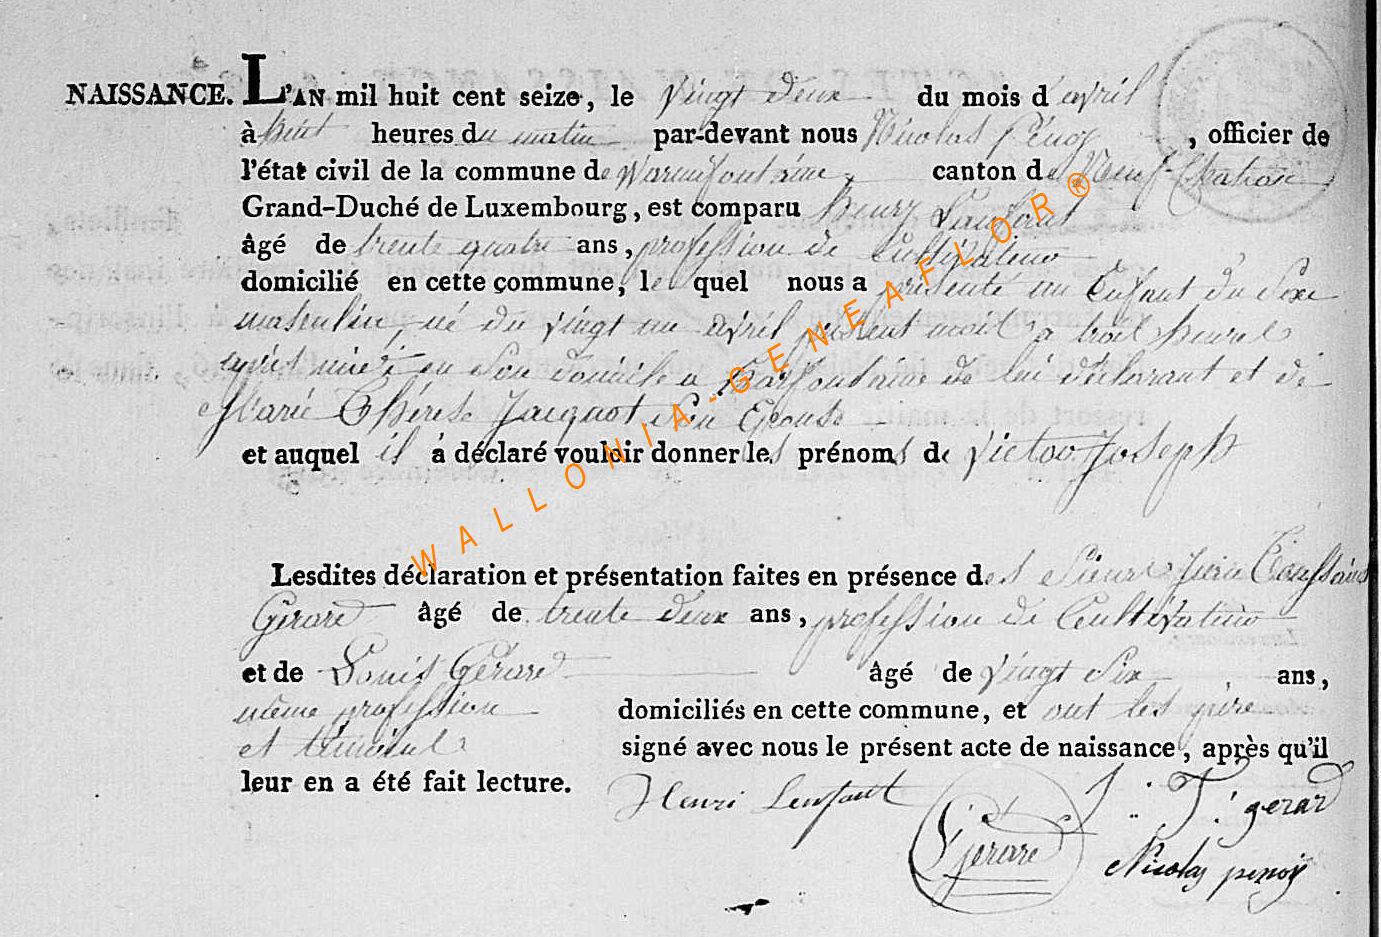 NAISSANCE. L'AN mil huit cent seize, le vingt deux du mois d'avril
à huit heures du matin par-devant nous Nicolas Penoy, officier de
l'état civil de la commune de Warmifontaine, canton de Neuf-Chateau
Grand-Duché de Luxembourg, est comparu henry Lenfant
âgé de trente quatre ans, profession de Cultivateur
domicilié en cette commune, lequel nous a présenté un Enfant du Sexe
masculin, né du vingt un avril présent mois a trois heures
après midi en Son domicile a de lui déclarant et de
Marie Thérese Jacquot Son Epouse
et auquel il a déclaré vouloir donner les prénoms de Victor Joseph
Lesdites déclaration et présentation faites en présence des Sieurs Jean Toussaint
Gérard âgé de trente deux ans, profession de Cultivateur
et de Louis Gérard âgé de vingt Six ans,
même profession domiciliés en cette commune, et ont les père
et témoins signé avec nous le présent acte de naissance, après qu'il
leur en a été fait lecture.
Henri Lenfant J: T: gerard
Gerard Nicolas penoy
WALLONIA-GENEAFLOR®